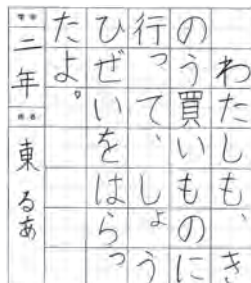 わたしも、き
のう買いものに
行って、しょう
ひぜいをはらっ
たよ。
二年
東 るあ